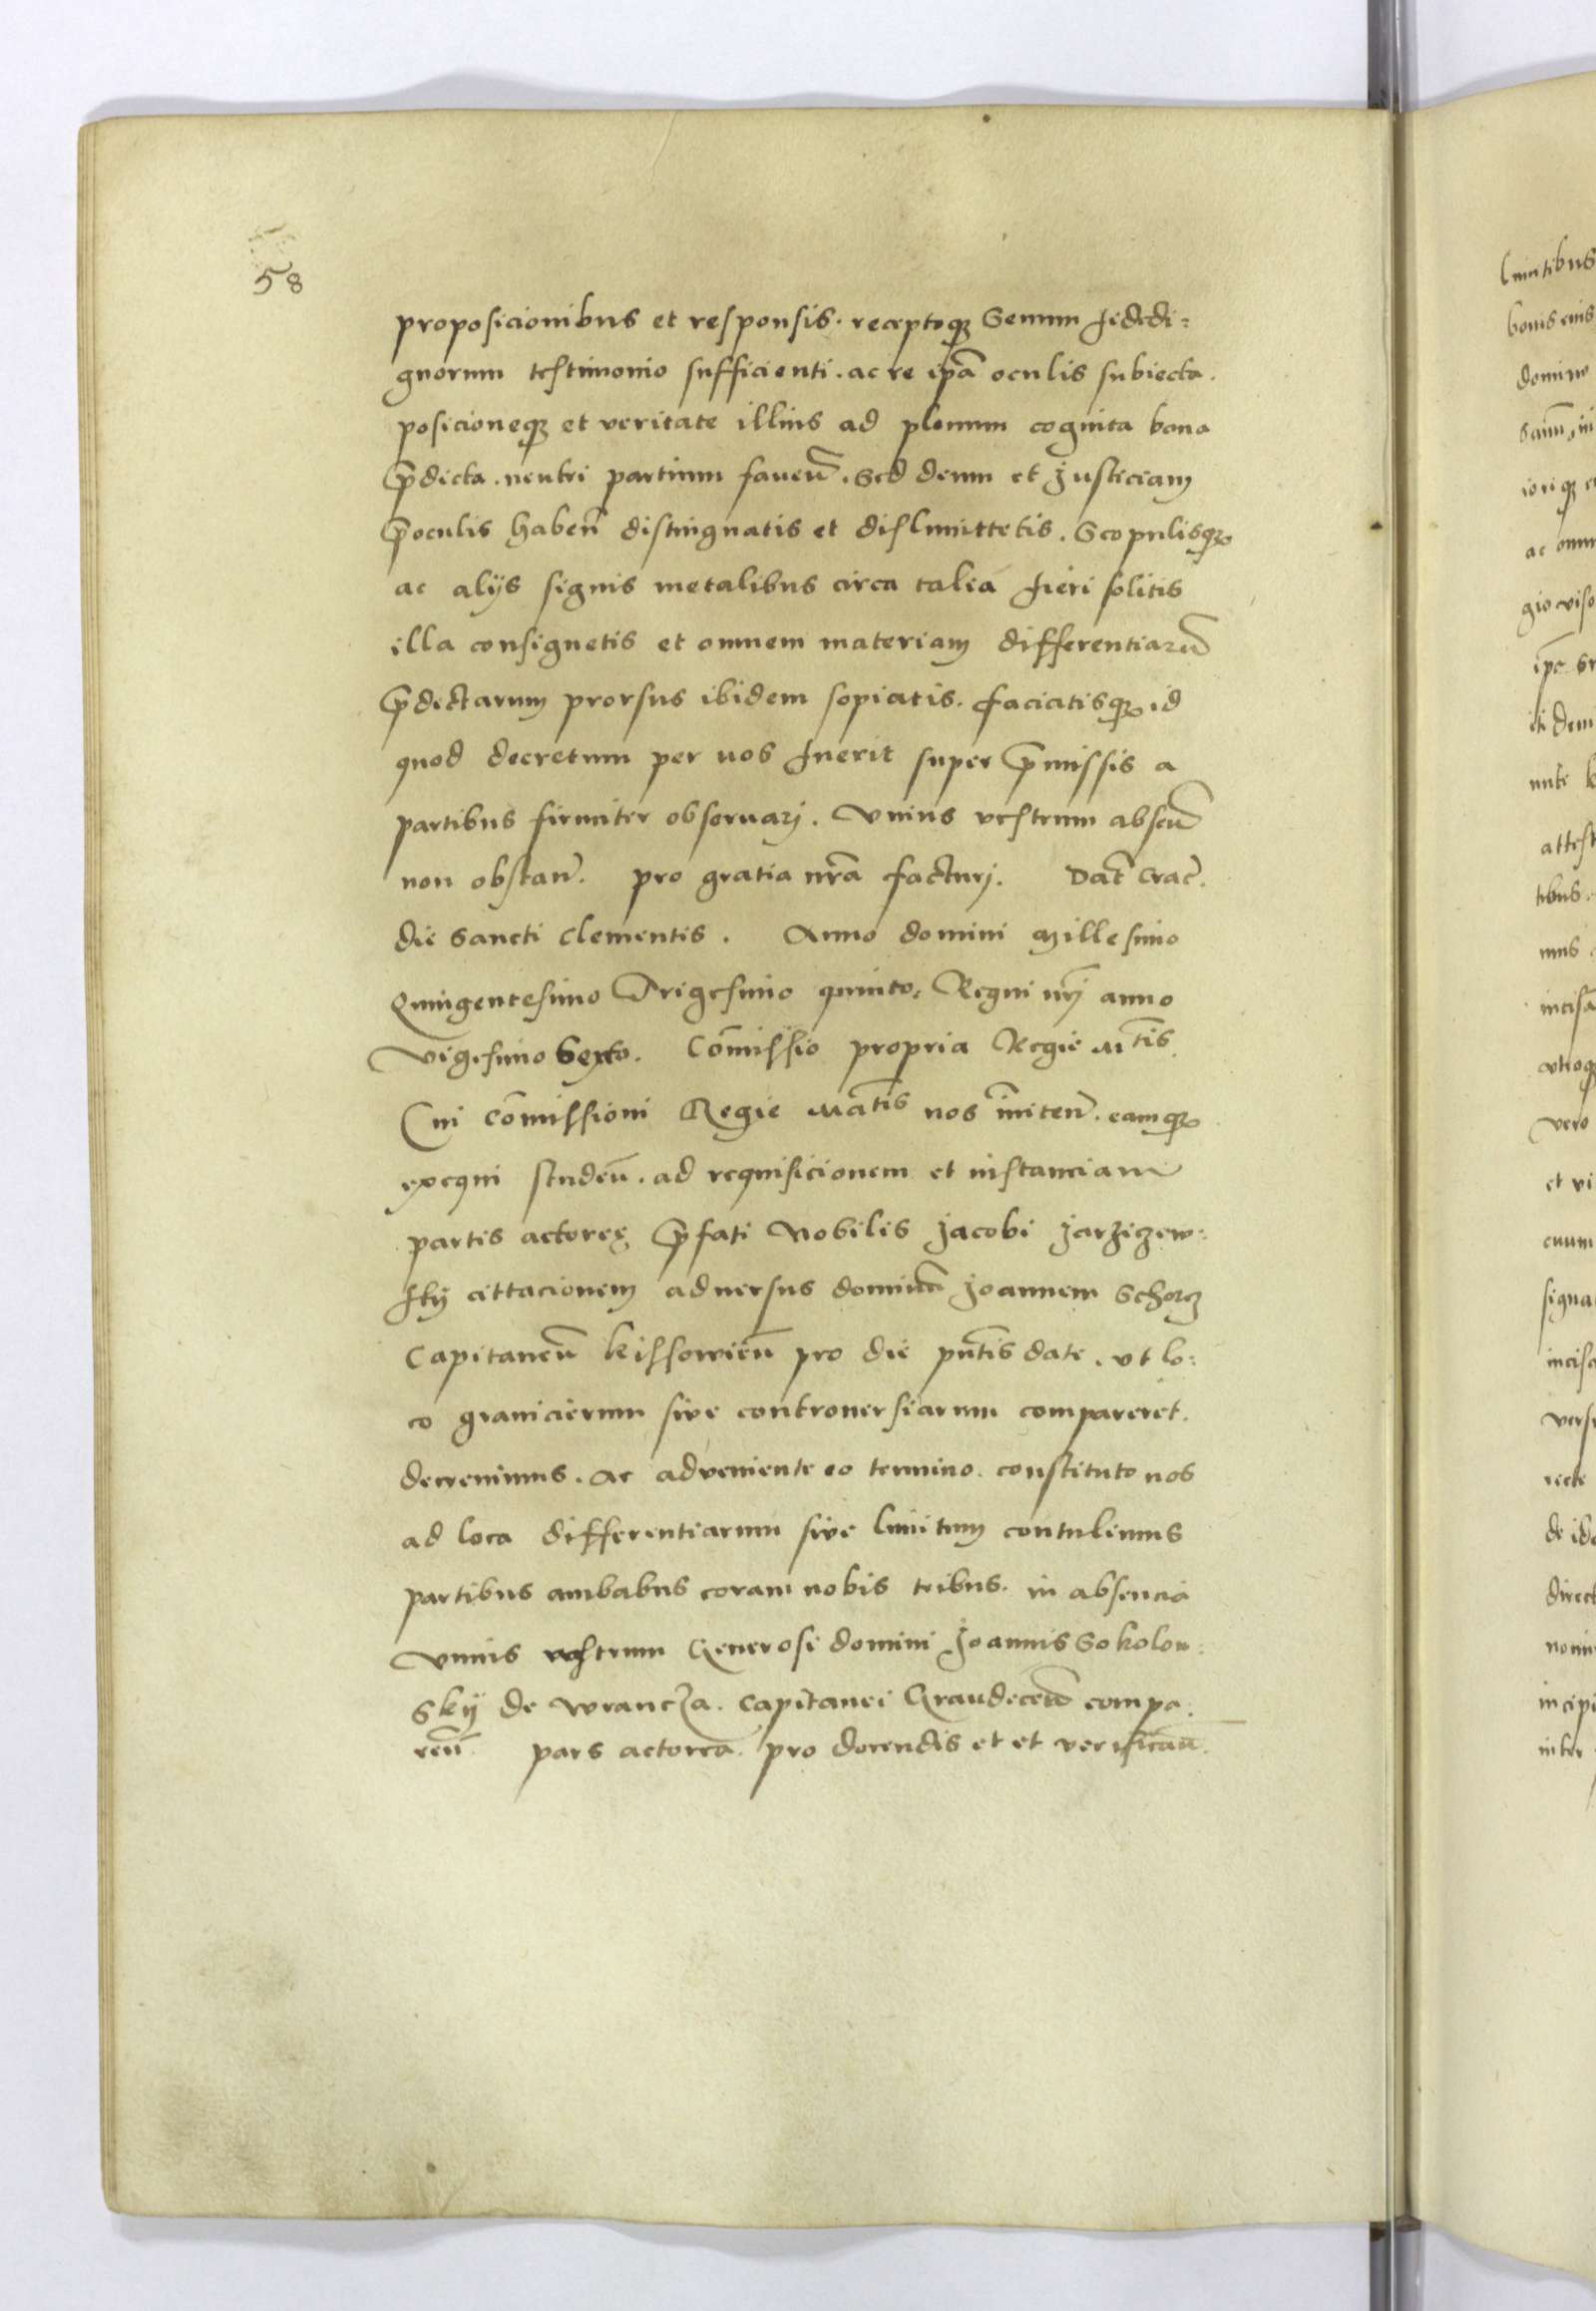 58
proposicionibus et responsis. receptoqꝫ Senum fidedi=
gnorum testimonio sufficienti. ac re ip̄a oculis subiecta.
posicioneqꝫ et veritate illius ad plenum cognita bona
p̄dicta. neutri partium faueñ. Sed deum et Justiciam
p̄oculis habeñ distinguatis et dislimittetis. Scopulisqꝫ
ac alijs signis metalibus circa talia fieri solitis
illa consignetis et omnem materiam differentiarū
p̄dictarum prorsus ibidem sopiatis. faciatisqꝫ id
quod decretum per uos fuerit super p̄missis a
partibus firmiter obseruarj. Vnius vestrum abseñ
non obstañ. pro gratia nr̄a facturj. Dat̄ Crac̄.
die Sancti Clementis. Anno domini Millesimo
Quingentesimo Trigesimo quinto: Regni nr̄j anno
Vigesimo Sexto. Com̄issio propria Regie Mt̄is
Cui Com̄issioni Regie Mat̄is nos īniteñ. eamqꝫ
exequi studeñ. ad requisicionem et instanciam
partis actoreę p̄fati Nobilis Jacobi Jarzizew=
sky cittacionem aduersus dominū Joannem Schorcz
Capitaneū kissowieñ pro die pn̄tis date. vt lo:
co granicierum sive controuersiarum compareret.
decreuimus. Ac adveniente eo termino. constituto nos
ad loca differentiarum sive limitum contulimus
partibus ambabus coram nobis tribus. in absencia
vnius vestrum Generosi domini Joannis Sokolow:
Skÿ de Wrancza. Capitanei Graudeceñ compa:
reñ. pars actorea. pro docendis et et verificañ.